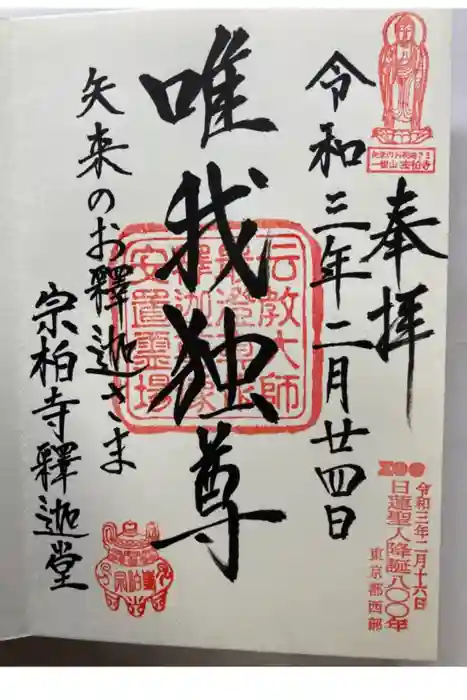 奉拝
令和三年二月廿四日
唯我独尊
矢来のお釋迦さま
宗柏寺釋迦堂
一樹山 宗柏寺
伝教大師
最澄直作
釋迦尊像
安置霊場
令和三年二月十六日
日蓮聖人降誕八〇〇年
東京都西部